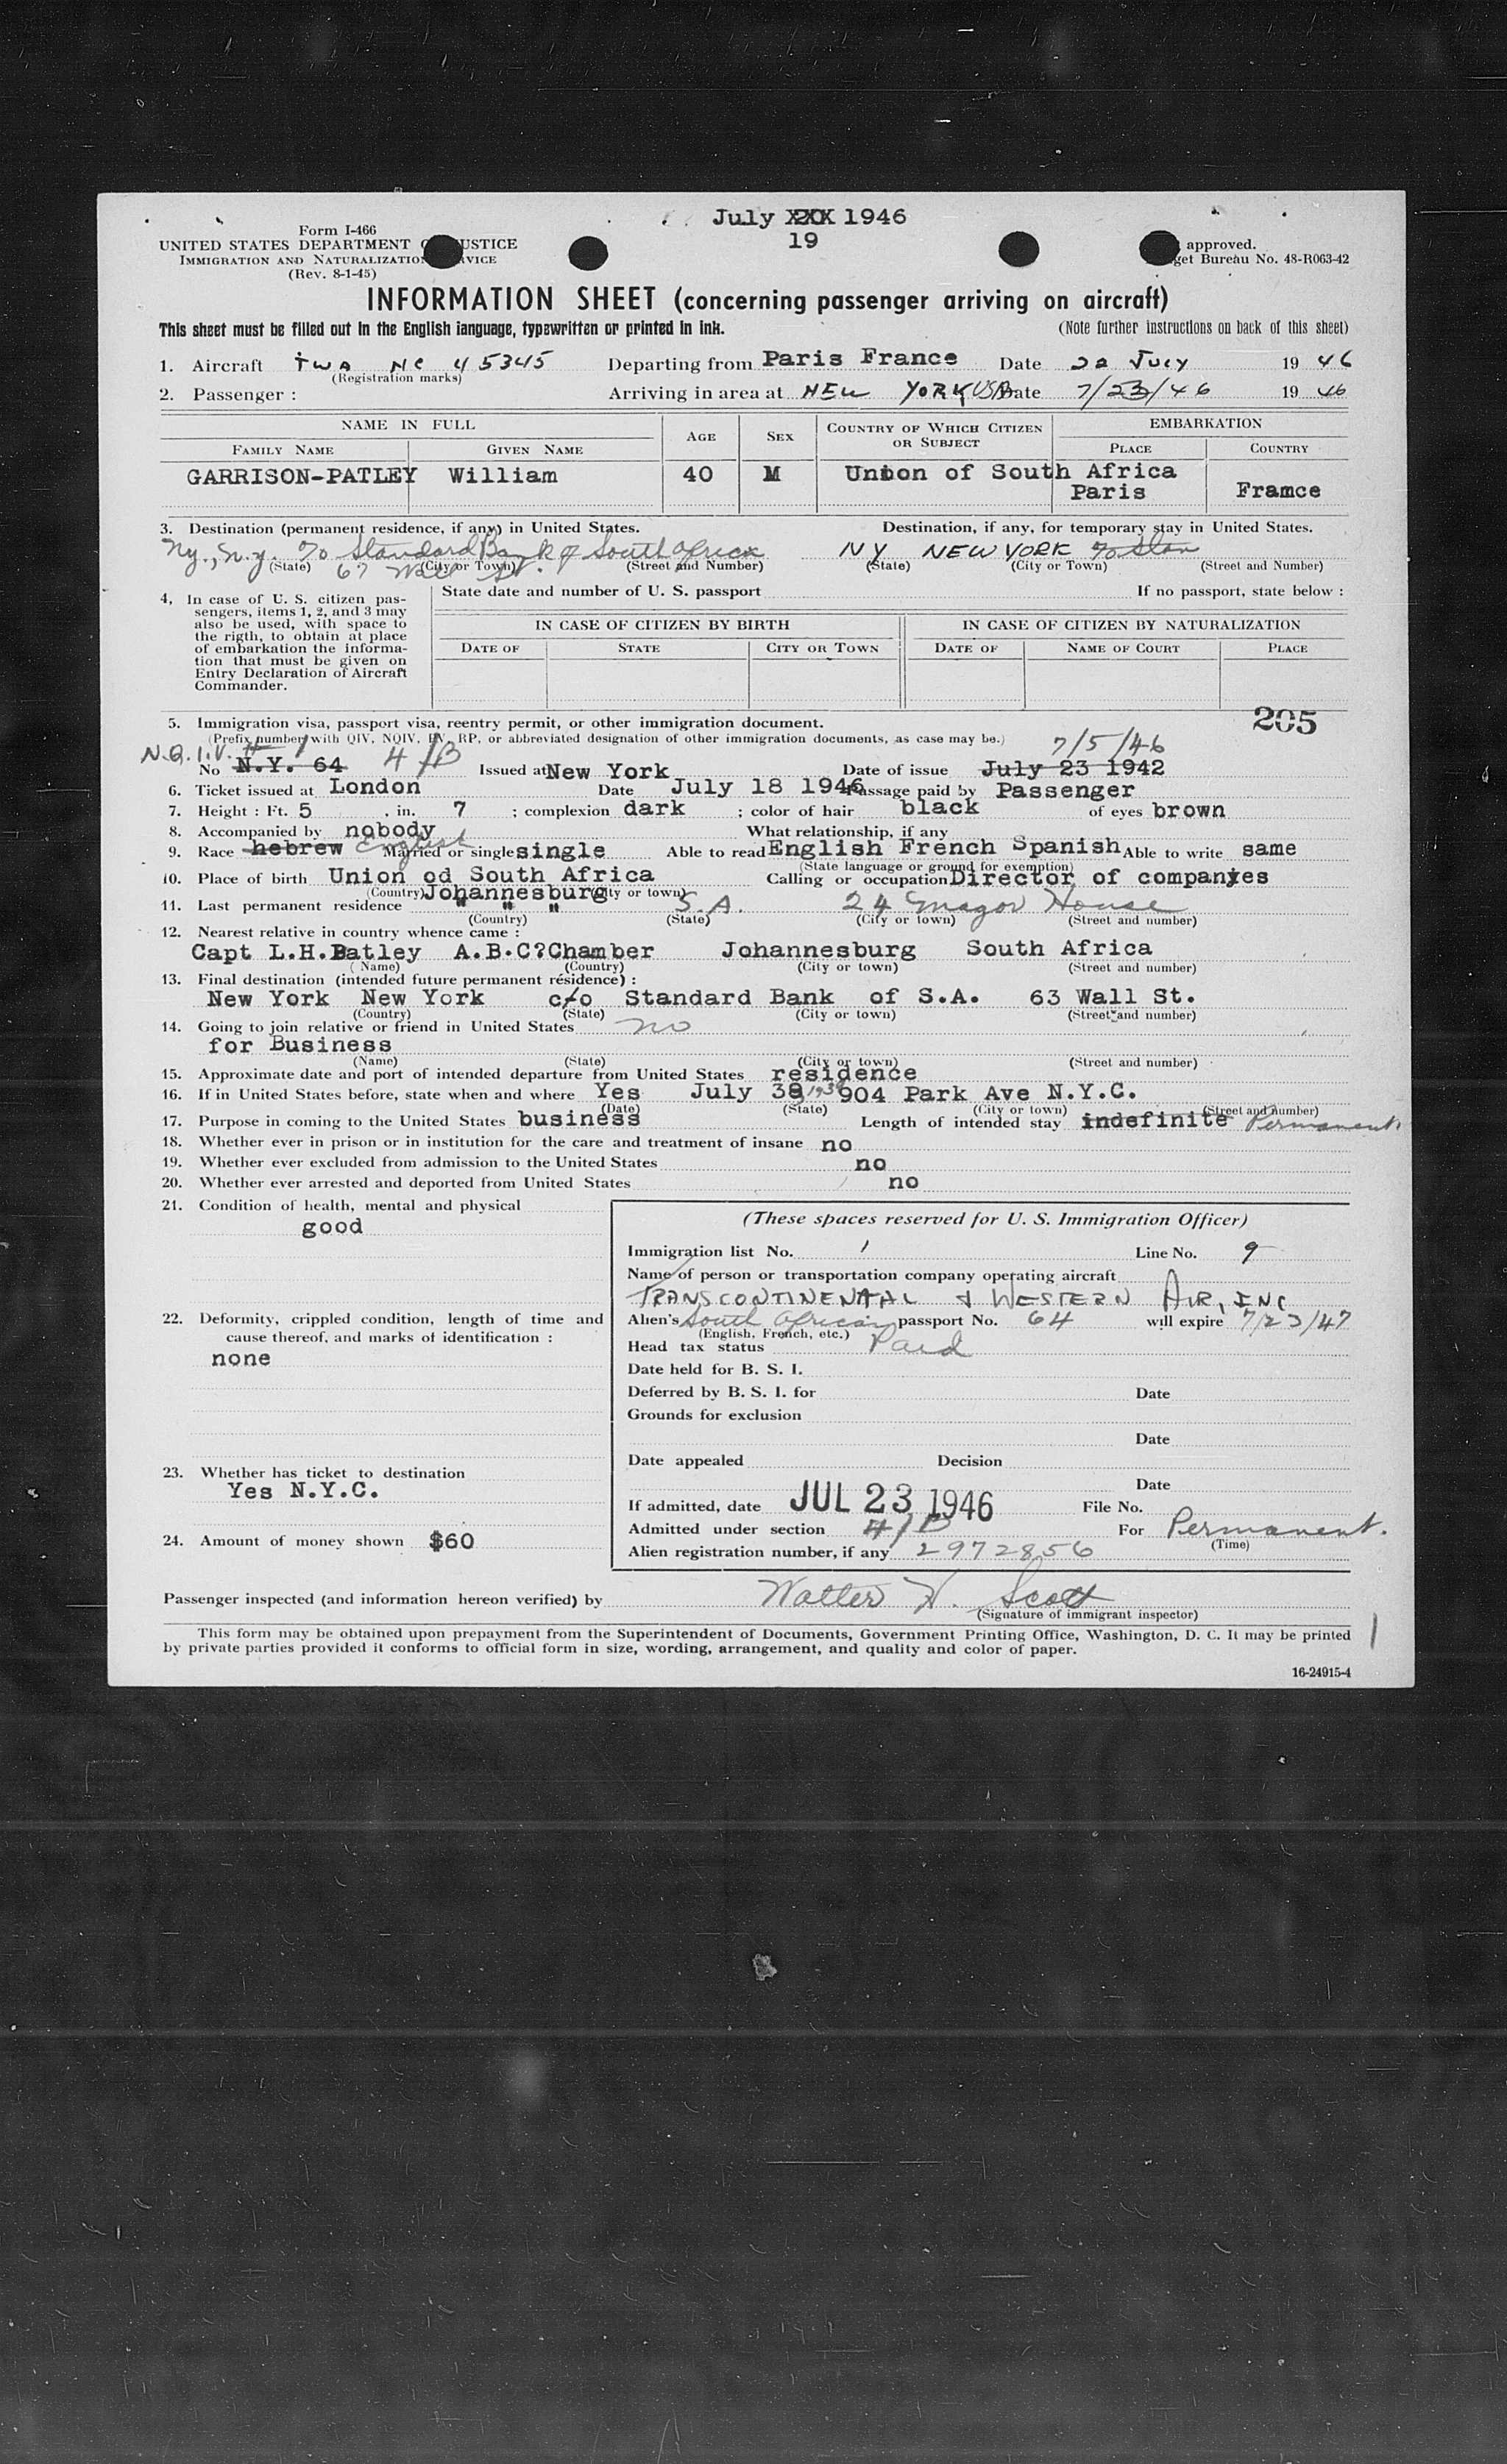 July XXX 1946
19
Form I-466
UNITED STATES DEPARTMENT JUSTICE
IMMIGRATION AND NATURALIZATION
(Rev. 8-1-45)
approved.
get Bureau No. 48-R063-42
INFORMATION SHEET (concerning passenger arriving on aircraft)
This sheet must be filled out in the English language, typewritten or printed in ink.
(Note further instructions on back of this sheet)
1. Aircraft TWA NC 45345 Departing from Paris France Date 22 July 19 46
(Registration marks)
2. Passenger : Arriving in area at NEW YORK USA Date 7/23/46 19 46
NAME IN FULL AGE SEX COUNTRY OF WHICH CITIZEN OR SUBJECT EMBARKATION
FAMILY NAME GIVEN NAME PLACE COUNTRY
GARRISON-PATLEY William 40 M Union of South Africa
Paris Framce
3. Destination (permanent residence, if any) in United States. Destination, if any, for temporary stay in United States.
Ny., N.y. c/o Standard Bank of South Africa NY NEW YORK c/o Stan
(State) (City or Town) (Street and Number) (State) (City or Town) (Street and Number)
67 Wall St.
4. In case of U. S. citizen pas-
sengers, items 1, 2, and 3 may
also be used, with space to
the rigth, to obtain at place
of embarkation the informa-
tion that must be given on
Entry Declaration of Aircraft
Commander.
State date and number of U. S. passport If no passport, state below :
IN CASE OF CITIZEN BY BIRTH IN CASE OF CITIZEN BY NATURALIZATION
DATE OF STATE CITY OR TOWN DATE OF NAME OF COURT PLACE
205
5. Immigration visa, passport visa, reentry permit, or other immigration document.
(Prefix number with QIV, NQIV, PV, RP, or abbreviated designation of other immigration documents, as case may be.)
N.Q.I.V. # 1 7/5/46
No N.Y. 64 4/B Issued at New York Date of issue July 23 1942
6. Ticket issued at London Date July 18 1946 Passage paid by Passenger
7. Height : Ft. 5 . in. 7 ; complexion dark ; color of hair black of eyes brown
8. Accompanied by nobody What relationship, if any
9. Race hebrew English Married or single single Able to read English French Spanish Able to write same
(State language or ground for exemption)
10. Place of birth Union od South Africa Calling or occupation Director of companyes
(Country) Johannesburg (City or town)
11. Last permanent residence " " " S.A. 24 Magor House
(Country) (State) (City or town) (Street and number)
12. Nearest relative in country whence came :
Capt L.H.Patley A.B.C?Chamber Johannesburg South Africa
(Name) (Country) (City or town) (Street and number)
13. Final destination (intended future permanent résidence) :
New York New York c/o Standard Bank of S.A. 63 Wall St.
(Country) (State) (City or town) (Street and number)
14. Going to join relative or friend in United States no
for Business
(Name) (State) (City or town) (Street and number)
15. Approximate date and port of intended departure from United States residence
16. If in United States before, state when and where Yes July 39 1939 904 Park Ave N.Y.C.
(Date) (State) (City or town) (Street and number)
17. Purpose in coming to the United States business Length of intended stay indefinite Permanent.
18. Whether ever in prison or in institution for the care and treatment of insane no
19. Whether ever excluded from admission to the United States no
20. Whether ever arrested and deported from United States no
21. Condition of health, mental and physical
good
22. Deformity, crippled condition, length of time and
cause thereof, and marks of identification :
none
23. Whether has ticket to destination
Yes N.Y.C.
24. Amount of money shown $60
(These spaces reserved for U. S. Immigration Officer)
Immigration list No. 1 Line No. 9
Name of person or transportation company operating aircraft
TRANSCONTINENTAL & WESTERN AIR, INC
Alien's South African passport No. 64 will expire 7/23/47
(English, French, etc.)
Head tax status Paid
Date held for B. S. I.
Deferred by B. S. I. for Date
Grounds for exclusion
Date
Date appealed Decision
Date
If admitted, date JUL 23 1946 File No.
Admitted under section 4/B For Permanent.
(Time)
Alien registration number, if any 2972856
Passenger inspected (and information hereon verified) by Walter W. Scott
(Signature of immigrant inspector)
This form may be obtained upon prepayment from the Superintendent of Documents, Government Printing Office, Washington, D. C. It may be printed
by private parties provided it conforms to official form in size, wording, arrangement, and quality and color of paper.
16-24915-4